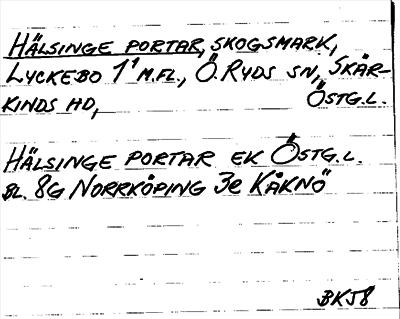 HÄLSINGE PORTAR, SKOGSMARK,
LYCKEBO 1¹ M.FL., Ö. RYDS SN, SKÄR-
KINDS HD, ÖSTG.L.
HÄLSINGE PORTAR EK ÖSTG.L.
BL. 8G NORRKÖPING 3e KÅKNÖ
BKJ8